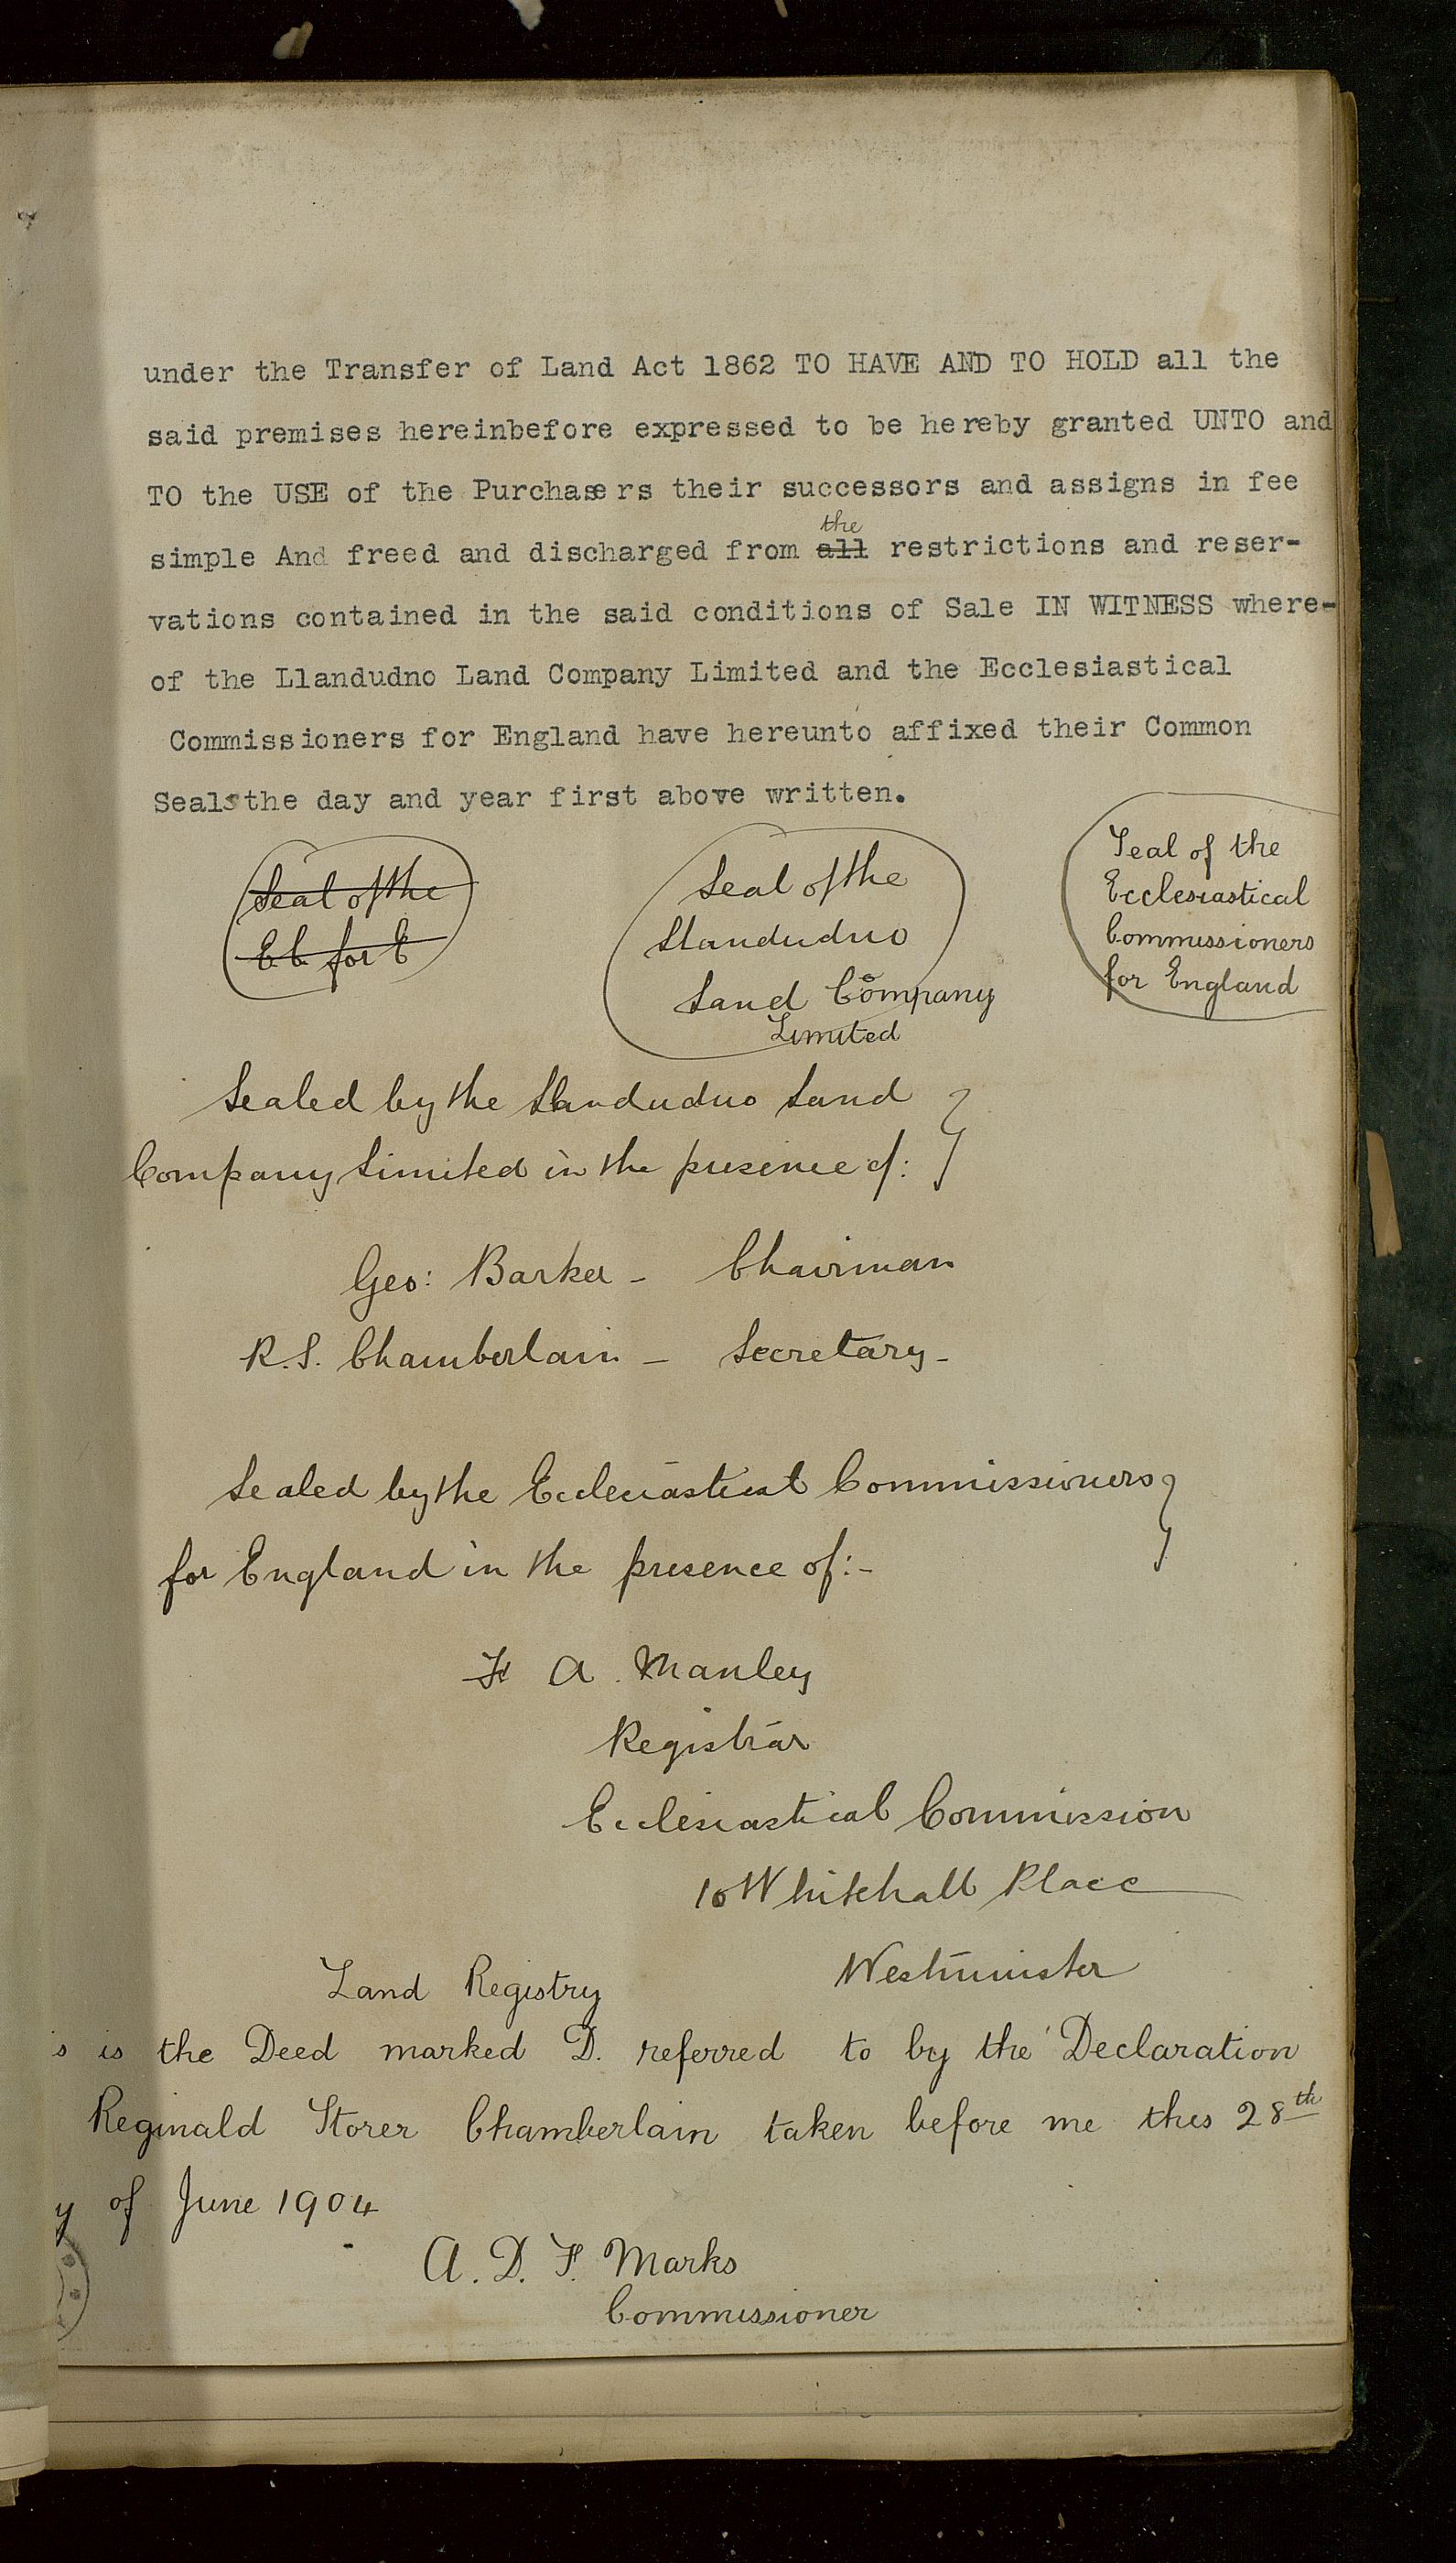 under the Transfer of Land Act 1862 TO HAVE AND TO HOLD all the
said premises hereinbefore expressed to be hereby granted UNTO and
TO the USE of the Purchasers their successors and assigns in fee
the
simple And freed and discharged from all restrictions and reser-
vations contained in the said conditions of Sale IN WITNESS where-
of the Llandudno Land Company Limited and the Ecclesiastical
Commissioners for England have hereunto affixed their Common
Seals the day and year first above written.
Seal of the
E C for E
Seal of the
Llandudno
Land Company
Limited
Seal of the
Ecclesiastical
Commissioners
for England
Sealed by the Llandudno Land
Company Limited in the presence of:
Geo: Barker - Chairman
R.S. Chamberlain - Secretary -
Sealed by the Ecclesiastical Commissioners
for England in the presence of:-
F A. Manley
Registrar
Ecclesiastical Commission
10 Whitehall Place
Westminister
Land Registry
s is the Deed marked D. referred to by the Declaration
Reginald Storer Chamberlain taken before me this 28th
y of June 1904
A. D. F. Marks
Commissioner